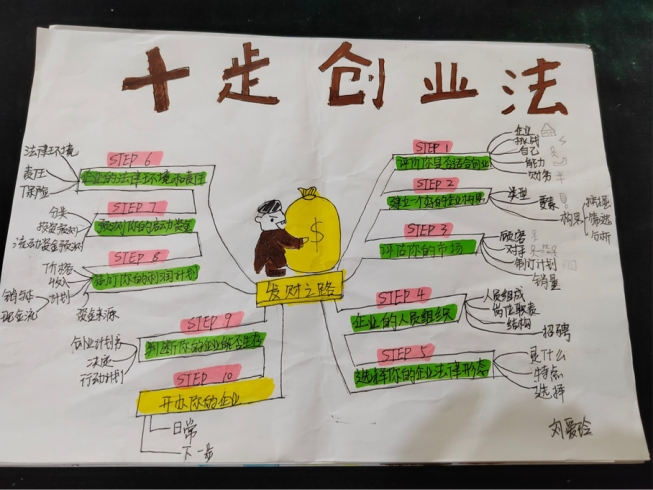 十步创业法
发财之路
STEP 1
评价你是否适合创业
企业
挑战
自己
能力
财务
STEP 2
建立一个好的企业构思
类型
要素
构思
挖掘
筛选
分析
STEP 3
评估你的市场
顾客
对手
制订计划
销量
STEP 4
企业的人员组织
人员组成
岗位职责
结构
招聘
STEP 5
选择你的企业法律形态
是什么
特点
选择
STEP 6
企业的法律环境和责任
法律环境
责任
保险
STEP 7
预测你的启动资金
分类
投资预测
流动资金预测
STEP 8
制订你的利润计划
价格
收入
计划
销售成本
现金流
资金来源
STEP 9
判断你的企业能否生存
创业计划书
决定
行动计划
STEP 10
开办你的企业
日常
下一步